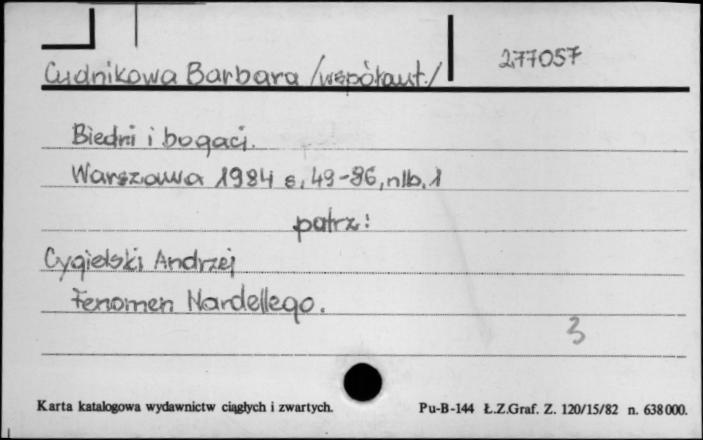 277057
Cudnikowa Barbara /współaut./
Biedni i bogaci.
Warszawa 1984 s. 49-96, nlb. 1
patrz:
Cygielski Andrzej
Fenomen Nardellego.
3
Karta katalogowa wydawnictw ciągłych i zwartych. Pu-B-144 Ł.Z.Graf. Z. 120/15/82 n. 638000.